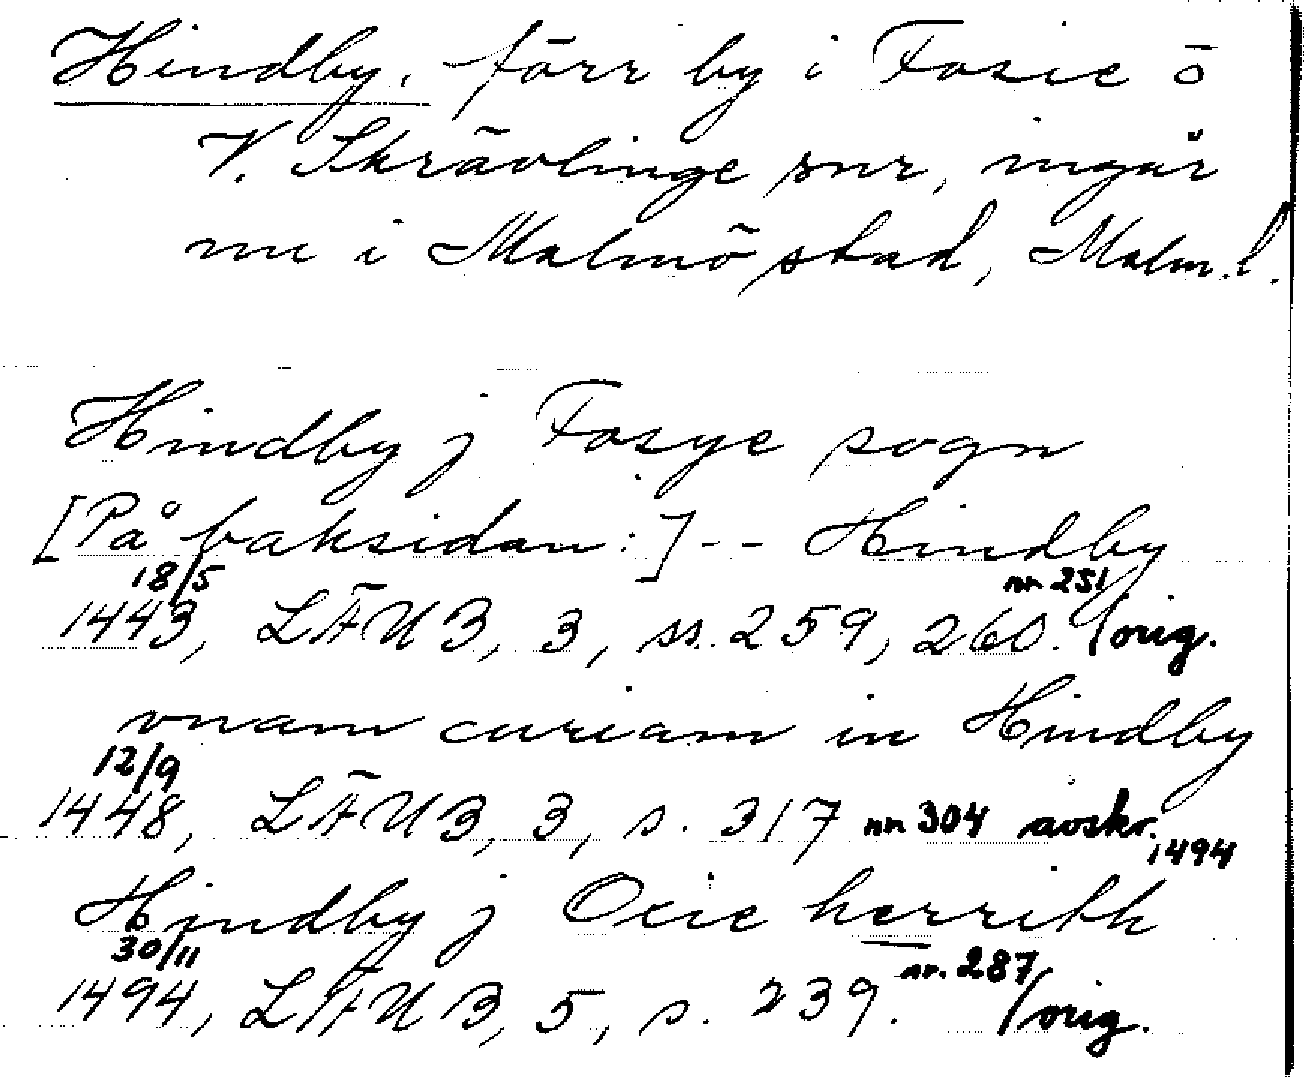 Hindby, förr by i Fosie o
V. Skrävlinge snr, ingår
nu i Malmö stad, Malm. l.
Hindby j Fosye sogn
[På baksidan:] -- Hindby
18/5 nr 251
1443, LÄUB, 3, ss. 259, 260. / orig.
vnam curiam in Hindby
12/9
1448, LÄUB, 3, s. 317 nr 304 avskr. 1494
Hindby j Oxie herrith
30/11 nr. 287
1494, LÄUB, 5, s. 239. / orig.